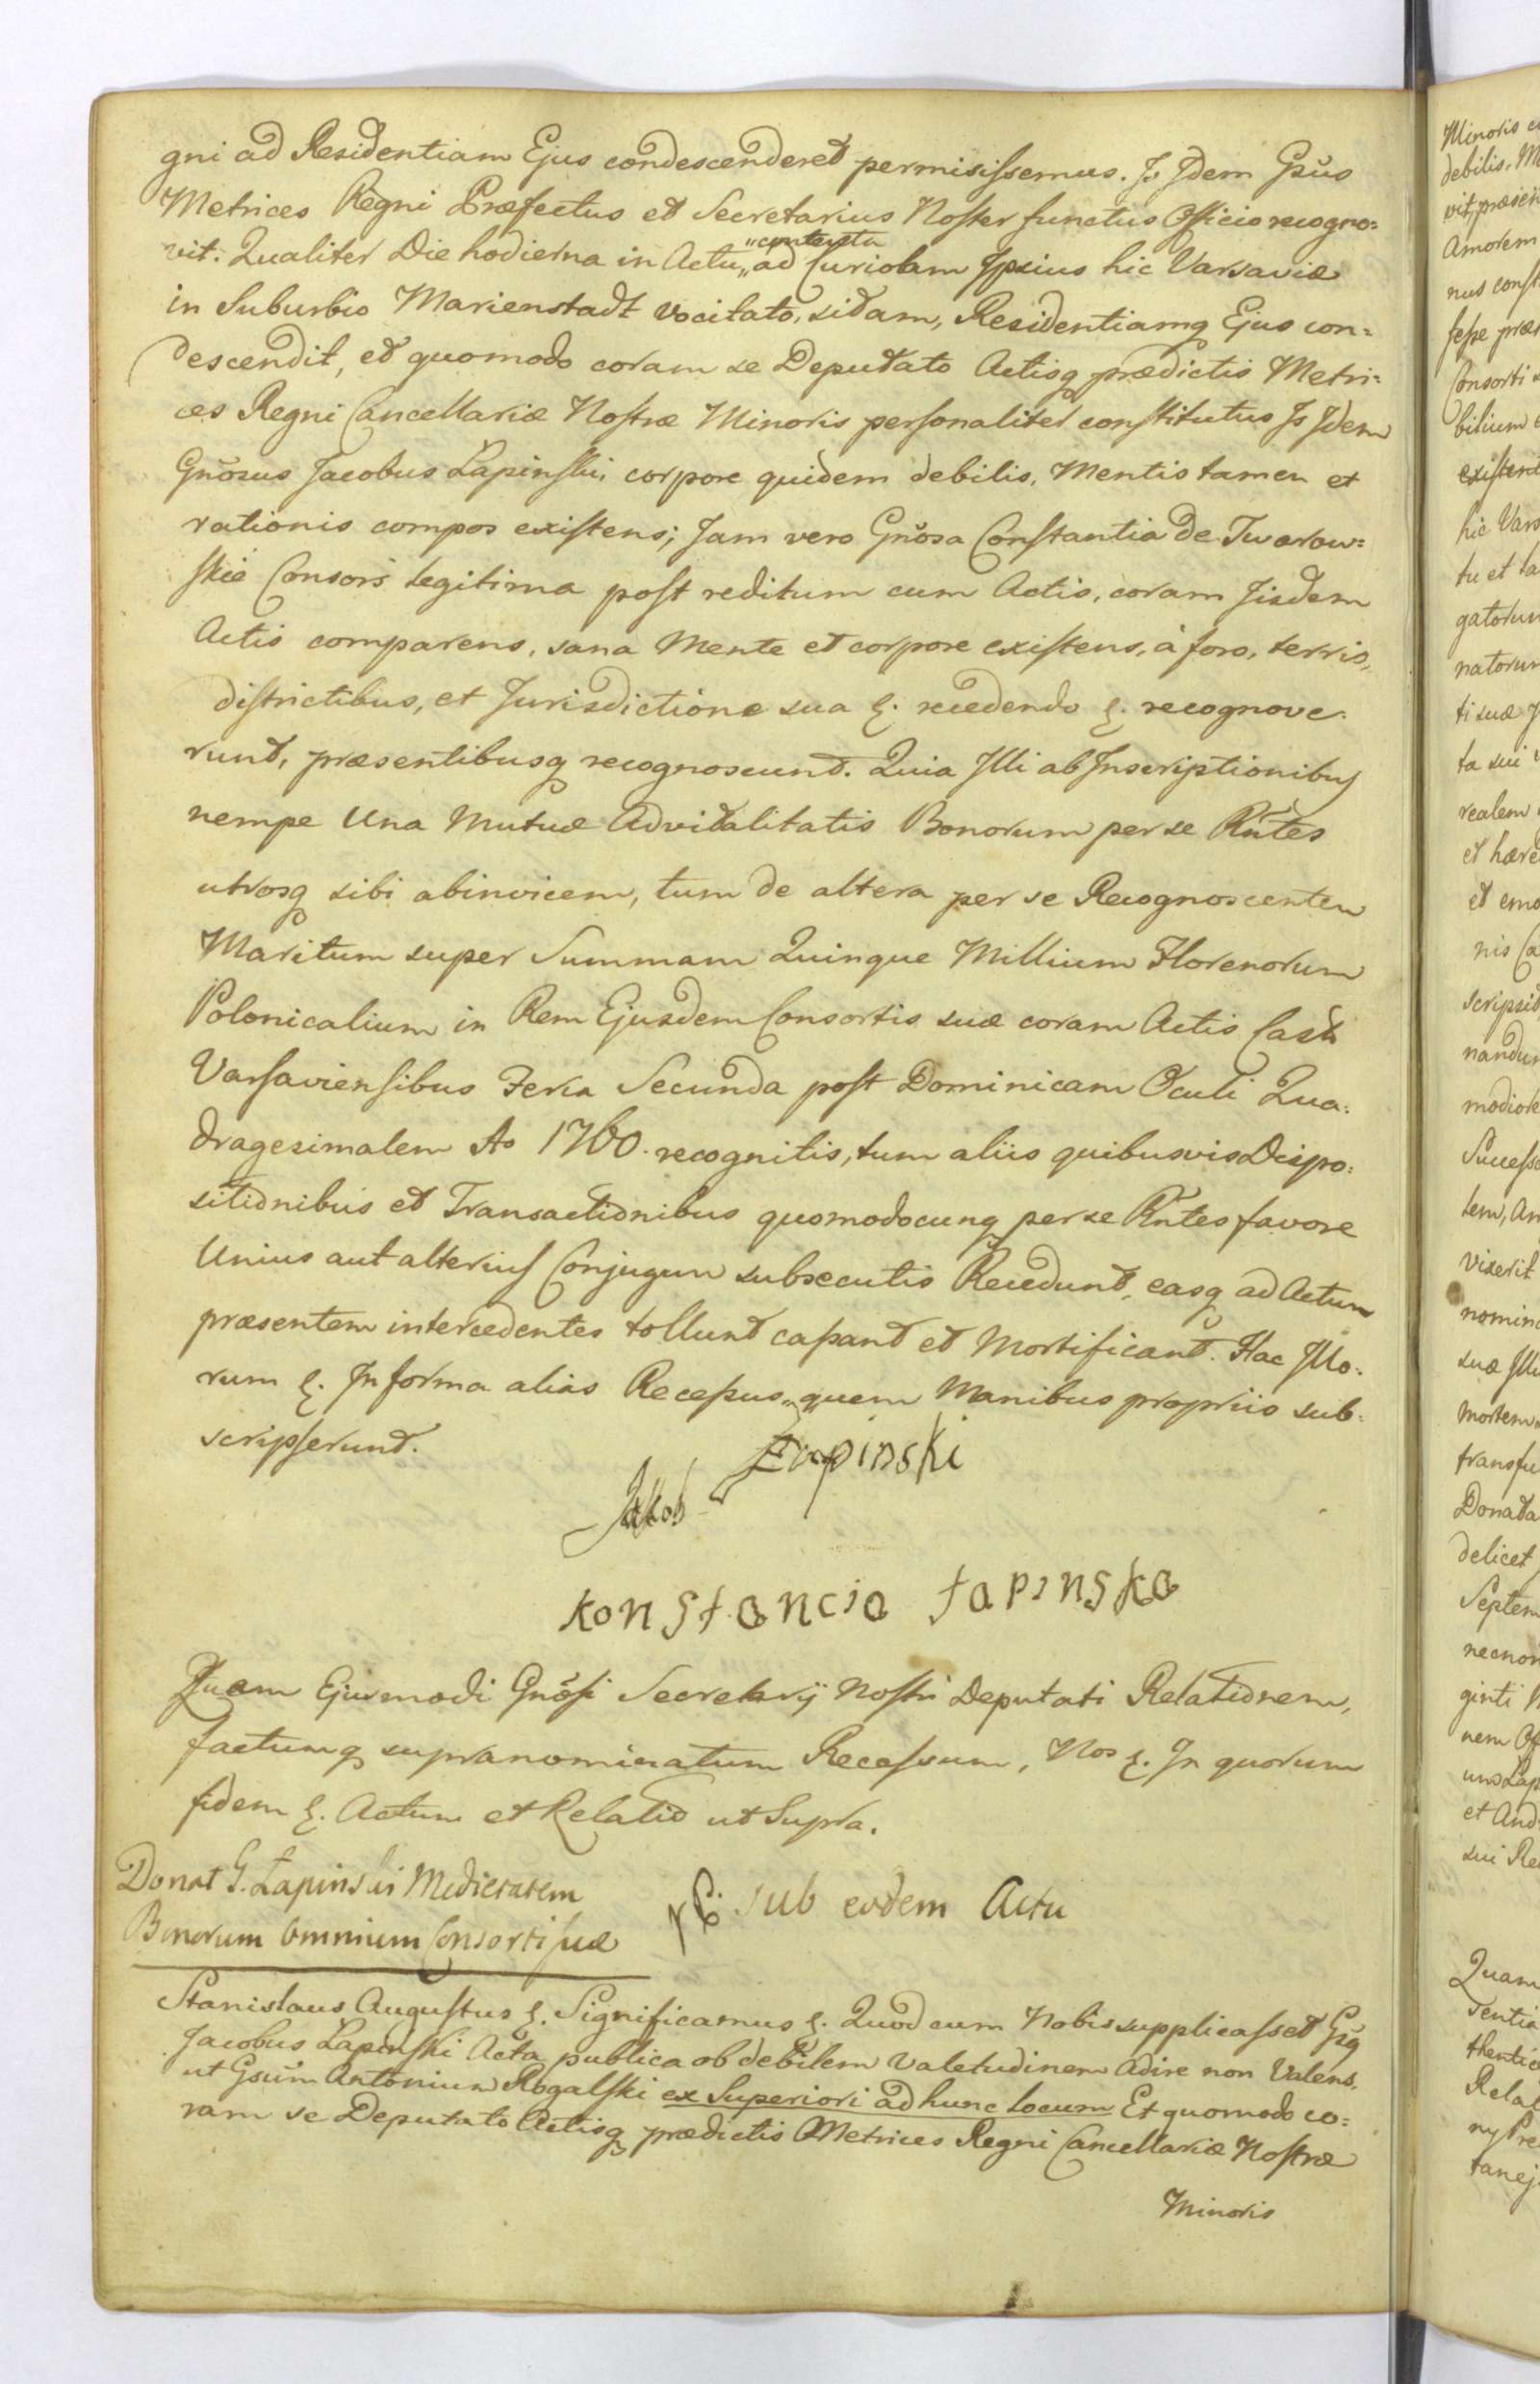 gni ad Residentiam Ejus condescenderet permisissemus. Is Idem Gsūs
Metrices Regni Præfectus et Secretarius Noster functus Officio recogno=
vit. Qualiter Die hodierna in Actu „contenta„ ad Curiolam Ipsius hic Varsaviæ
in Suburbio Marienstadt vocitato, sitam, Residentiamq Ejus con=
descendit, et quomodo coram se Deputato Actisq prædictis Metri=
ces Regni Cancellariæ Nostræ Minoris personaliter constitutus Is Idem
Gnōsus Jacobus Łapinski, corpore quidem debilis, Mentis tamen et
rationis compos existens; Jam vero Gnōsa Constantia de Twarow=
skie Consors legitima post reditum cum Actis, coram Iisdem
Actis comparens, sana Mente et corpore existens, à foro, terris,
districtibus, et Jurisdictione sua &. recedendo &. recognove=
runt, præsentibusq recognoscunt. Quia Illi ab Inscriptionibus
nempe Una Mutuæ Advitalitatis Bonorum per se Rñtes
utrosq sibi abinvicem, tum de altera per se Recognoscentem
Maritum super Summam Quinque Millium Florenorum
Polonicalium in Rem Ejusdem Consortis suæ coram Actis Castr
Varsaviensibus Feria Secunda post Dominicam Oculi Qua=
dragesimalem Ao 1760. recognitis, tum aliis quibusvis Dispo=
sitionibus et Transactionibus quomodocunq per se Rñtes favore
Unius aut alterius Conjugum subsecutis Recedunt, easq ad Actum
præsentem intercedentes tollunt cassant et Mortificant. Hac Illo=
rum &. In forma alias Recessus „quem Manibus propriis sub=
scripserunt.
Jakob Łapinski
Konstancia Łapinska
Quam Ejusmodi Gnōsi Secretarij Nostri Deputati Relationem,
factumq supranominatum Recessum, Nos &. In quorum
fidem &. Actum et Relatio ut Supra.
Donat G. Łapinski Medietatem
Bonorum Omnium Consorti suæ
sub eodem Actu
Stanislaus Augustus &. Significamus &. Quod cum Nobis supplicasset Gsq
Jacobus Łapinski Acta publica ob debilem Valetudinem adire non Valens,
ut Gsūm Antonium Rogalski ex Superiori ad hunc locum Et quomodo co=
ram se Deputato Actisq prædictis Metrices Regni Cancellariæ Nostræ
Minoris